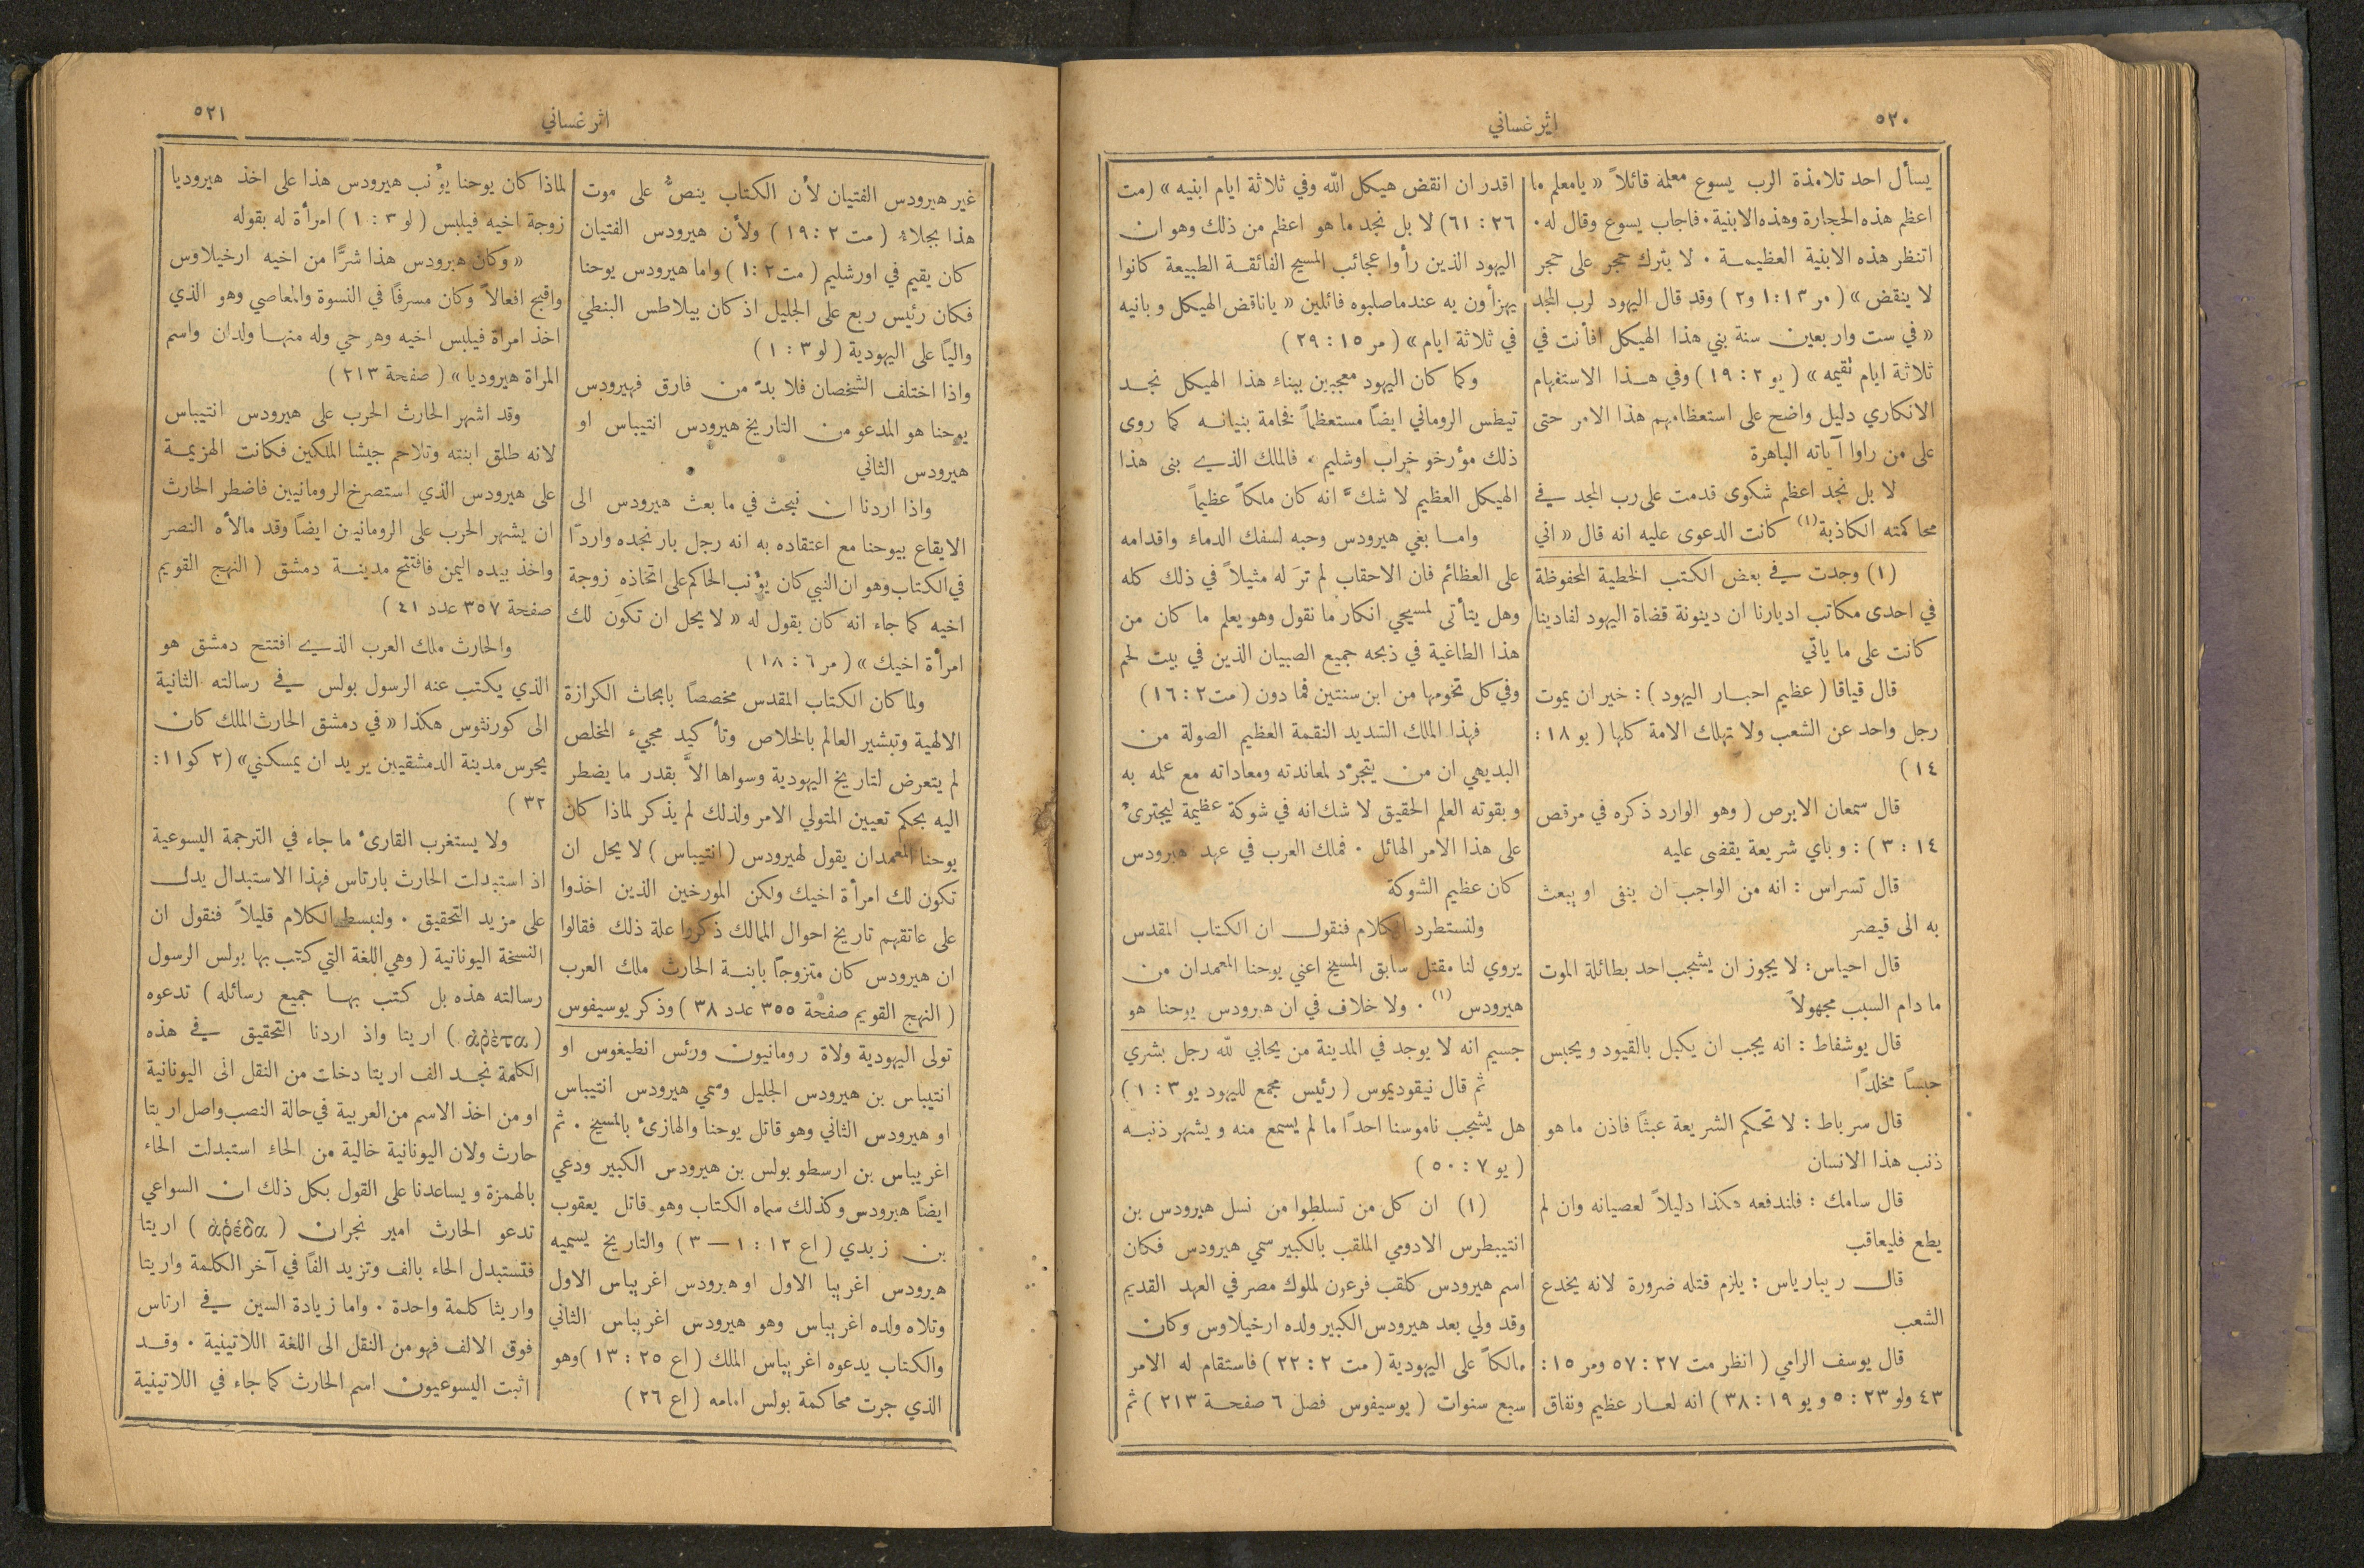 ٥٢٠
اثر غساني
يسأل احد تلامذة الرب يسوع معلمه قائلاً « يامعلم ما
اعظم هذه الحجارة وهذه الابنية . فاجاب يسوع وقال له .
اتنظر هذه الابنية العظيمة . لا يترك حجر على حجر
لا ينقض » ( مر ١٣ : ١ و٢ ) وقد قال اليهود لرب المجد
« في ست واربعين سنة بني هذا الهيكل افأنت في
ثلاثة ايام تقيمه » ( يو ٢ : ١٩ ) وفي هذا الاستفهام
الانكاري دليل واضح على استعظامهم هذا الامر حتى
على من راوا آياته الباهرة
لا بل نجد اعظم شكوى قدمت على رب المجد في
محاكمته الكاذبة (١) كانت الدعوى عليه انه قال « اني
(١) وجدت في بعض الكتب الخطية المحفوظة
في احدى مكاتب اديارنا ان دينونة قضاة اليهود لفادينا
كانت على ما ياتي
قال قيافا ( عظيم احبار اليهود ) : خير ان يموت
رجل واحد عن الشعب ولا تهلك الامة كلها ( يو ١٨ :
١٤ )
قال سمعان الابرص ( وهو الوارد ذكره في مرقص
١٤ : ٣ ) : وباي شريعة يقضى عليه
قال تسراس : انه من الواجب ان ينفى او يبعث
به الى قيصر
قال احياس : لا يجوز ان يشجب احد بطائلة الموت
ما دام السبب مجهولاً
قال يوشفاط : انه يجب ان يكبل بالقيود ويحبس
حبساً مخلداً
قال سرباط : لا تحكم الشريعة عبثاً فاذن ما هو
ذنب هذا الانسان
قال سامك : فلندفعه هكذا دليلاً لعصيانه وان لم
يطع فليعاقب
قال ريبارياس : يلزم قتله ضرورة لانه يخدع
الشعب
قال يوسف الرامي ( انظر مت ٢٧ : ٥٧ ومر ١٥ :
٤٣ ولو ٢٣ : ٥ و يو ١٩ : ٣٨ ) انه لعار عظيم ونفاق
اقدر ان انقض هيكل الله وفي ثلاثة ايام ابنيه » ( مت
٢٦ : ٦١ ) لا بل نجد ما هو اعظم من ذلك وهو ان
اليهود الذين رأوا عجائب المسيح الفائقة الطبيعة كانوا
يهزأون به عندما صلبوه قائلين « ياناقض الهيكل وبانيه
في ثلاثة ايام » ( مر ١٥ : ٢٩ )
وكما كان اليهود معجبين ببناء هذا الهيكل نجد
تيطس الروماني ايضاً مستعظماً فخامة بنيانه كما روى
ذلك مؤرخو خراب اوشليم . فالملك الذي بنى هذا
الهيكل العظيم لا شكَّ انه كان ملكاً عظيماً
واما بغي هيرودس وحبه لسفك الدماء واقدامه
على العظائم فان الاحقاب لم ترَ له مثيلاً في ذلك كله
وهل يتأتى لمسيحي انكار ما نقول وهو يعلم ما كان من
هذا الطاغية في ذبحه جميع الصبيان الذين في بيت لحم
وفي كل تخومها من ابن سنتين فما دون ( مت ٢ : ١٦ )
فهذا الملك الشديد النقمة العظيم الصولة من
البديهي ان من يتجرَّد لمعاندته ومعاداته مع علمه به
وبقوته العلم الحقيق لا شك انه في شوكة عظيمة ليجترئ
على هذا الامر الهائل . فملك العرب في عهد هيرودس
كان عظيم الشوكة
ولنستطرد الكلام فنقول ان الكتاب المقدس
يروي لنا مقتل سابق المسيح اعني يوحنا المعمدان من
هيرودس (١) . ولا خلاف في ان هيرودس يوحنا هو
جسيم انه لا يوجد في المدينة من يحابي لله رجل بشري
ثم قال نيقوديموس ( رئيس مجمع لليهود يو ٣ : ١ )
هل يشجب ناموسنا احداً ما لم يسمع منه ويشهر ذنبه
( يو ٧ : ٥٠ )
(١) ان كل من تسلطوا من نسل هيرودس بن
انتيبطرس الادومي الملقب بالكبير سمي هيرودس فكان
اسم هيرودس كلقب فرعون لملوك مصر في العهد القديم
وقد ولي بعد هيرودس الكبير ولده ارخيلاوس وكان
مالكاً على اليهودية ( مت ٢ : ٢٢ ) فاستقام له الامر
سبع سنوات ( يوسيفوس فصل ٦ صفحة ٢١٣ ) ثم
اثر غساني
٥٢١
غير هيرودس الفتيان لأن الكتاب ينصُّ على موت
هذا بجلاء ( مت ٢ : ١٩ ) ولأن هيرودس الفتيان
كان يقيم في اورشليم ( مت ٢ : ١ ) واما هيرودس يوحنا
فكان رئيس ربع على الجليل اذ كان بيلاطس البنطي
والياً على اليهودية ( لو ٣ : ١ )
واذا اختلف الشخصان فلا بدَّ من فارق فهيرودس
يوحنا هو المدعو من التاريخ هيرودس انتيباس او
هيرودس الثاني
واذا اردنا ان نبحث في ما بعث هيرودس الى
الايقاع بيوحنا مع اعتقاده به انه رجل بار نجده وارداً
في الكتاب وهو ان النبي كان يؤنب الحاكم على اتخاذه زوجة
اخيه كما جاء انه كان يقول له « لا يحل ان تكون لك
امرأة اخيك » ( مر ٦ : ١٨ )
ولما كان الكتاب المقدس مخصصاً بابحاث الكرازة
الالهية وتبشير العالم بالخلاص وتأكيد مجيء المخلص
لم يتعرض لتاريخ اليهودية وسواها الاَّ بقدر ما يضطر
اليه بحكم تعيين المتولي الامر ولذلك لم يذكر لماذا كان
يوحنا المعمدان يقول لهيرودس ( انتيباس ) لا يحل ان
تكون لك امرأة اخيك ولكن المورخين الذين اخذوا
على عاتقهم تاريخ احوال الممالك ذكروا علة ذلك فقالوا
ان هيرودس كان متزوجاً بابنة الحارث ملك العرب
( النهج القويم صفحة ٣٥٥ عدد ٣٨ ) وذكر يوسيفوس
تولى اليهودية ولاة رومانيون ورئس انطيغوس او
انتيباس بن هيرودس الجليل وسمي هيرودس انتيباس
او هيرودس الثاني وهو قاتل يوحنا والهازئ بالمسيح . ثم
اغريباس بن ارسطو بولس بن هيرودس الكبير ودعي
ايضاً هيرودس وكذلك سماه الكتاب وهو قاتل يعقوب
بن زبدي ( اع ١٢ : ١ — ٣ ) والتاريخ يسميه
هيرودس اغريبا الاول او هيرودس اغريباس الاول
وتلاه ولده اغريباس وهو هيرودس اغريباس الثاني
والكتاب يدعوه اغريباس الملك ( اع ٢٥ : ١٣ ) وهو
الذي جرت محاكمة بولس امامه ( اع ٢٦ )
لماذا كان يوحنا يؤنب هيرودس هذا على اخذ هيروديا
زوجة اخيه فيلبس ( لو ٣ : ١ ) امرأة له بقوله
« وكان هيرودس هذا شرًّا من اخيه ارخيلاوس
واقبح افعالاً وكان مسرفاً في النسوة والمعاصي وهو الذي
اخذ امراة فيلبس اخيه وهو حي وله منها ولدان واسم
المراة هيروديا » ( صفحة ٢١٣ )
وقد اشهر الحارث الحرب على هيرودس انتيباس
لانه طلق ابنته وتلاحم جيشا الملكين فكانت الهزيمة
على هيرودس الذي استصرخ الرومانيين فاضطر الحارث
ان يشهر الحرب على الرومانيين ايضاً وقد مالأه النصر
واخذ بيده اليمن فافتتح مدينة دمشق ( النهج القويم
صفحة ٣٥٧ عدد ٤١ )
والحارث ملك العرب الذي افتتح دمشق هو
الذي يكتب عنه الرسول بولس في رسالته الثانية
الى كورنثوس هكذا « في دمشق الحارث الملك كان
يحرس مدينة الدمشقيين يريد ان يمسكني » ( ٢ كو ١١ :
٣٢ )
ولا يستغرب القارئ ما جاء في الترجمة اليسوعية
اذ استبدلت الحارث بارتاس فهذا الاستبدال يدل
على مزيد التحقيق . ولنبسط الكلام قليلاً فنقول ان
النسخة اليونانية ( وهي اللغة التي كتب بها بولس الرسول
رسالته هذه بل كتب بها جميع رسائله ) تدعوه
( ἀρέτα ) اريتا واذ اردنا التحقيق في هذه
الكلمة نجد الف اريتا دخلت من النقل الى اليونانية
او من اخذ الاسم من العربية في حالة النصب واصل اريتا
حارث ولان اليونانية خالية من الحاء استبدلت الحاء
بالهمزة ويساعدنا على القول بكل ذلك ان السواعي
تدعو الحارث امير نجران ( ἀρέδα ) اريتا
فتستبدل الحاء بالف وتزيد الفاً في آخر الكلمة واريتا
واريثا كلمة واحدة . واما زيادة السين في ارتاس
فوق الالف فهو من النقل الى اللغة اللاتينية . وقد
اثبت اليسوعيون اسم الحارث كما جاء في اللاتينية